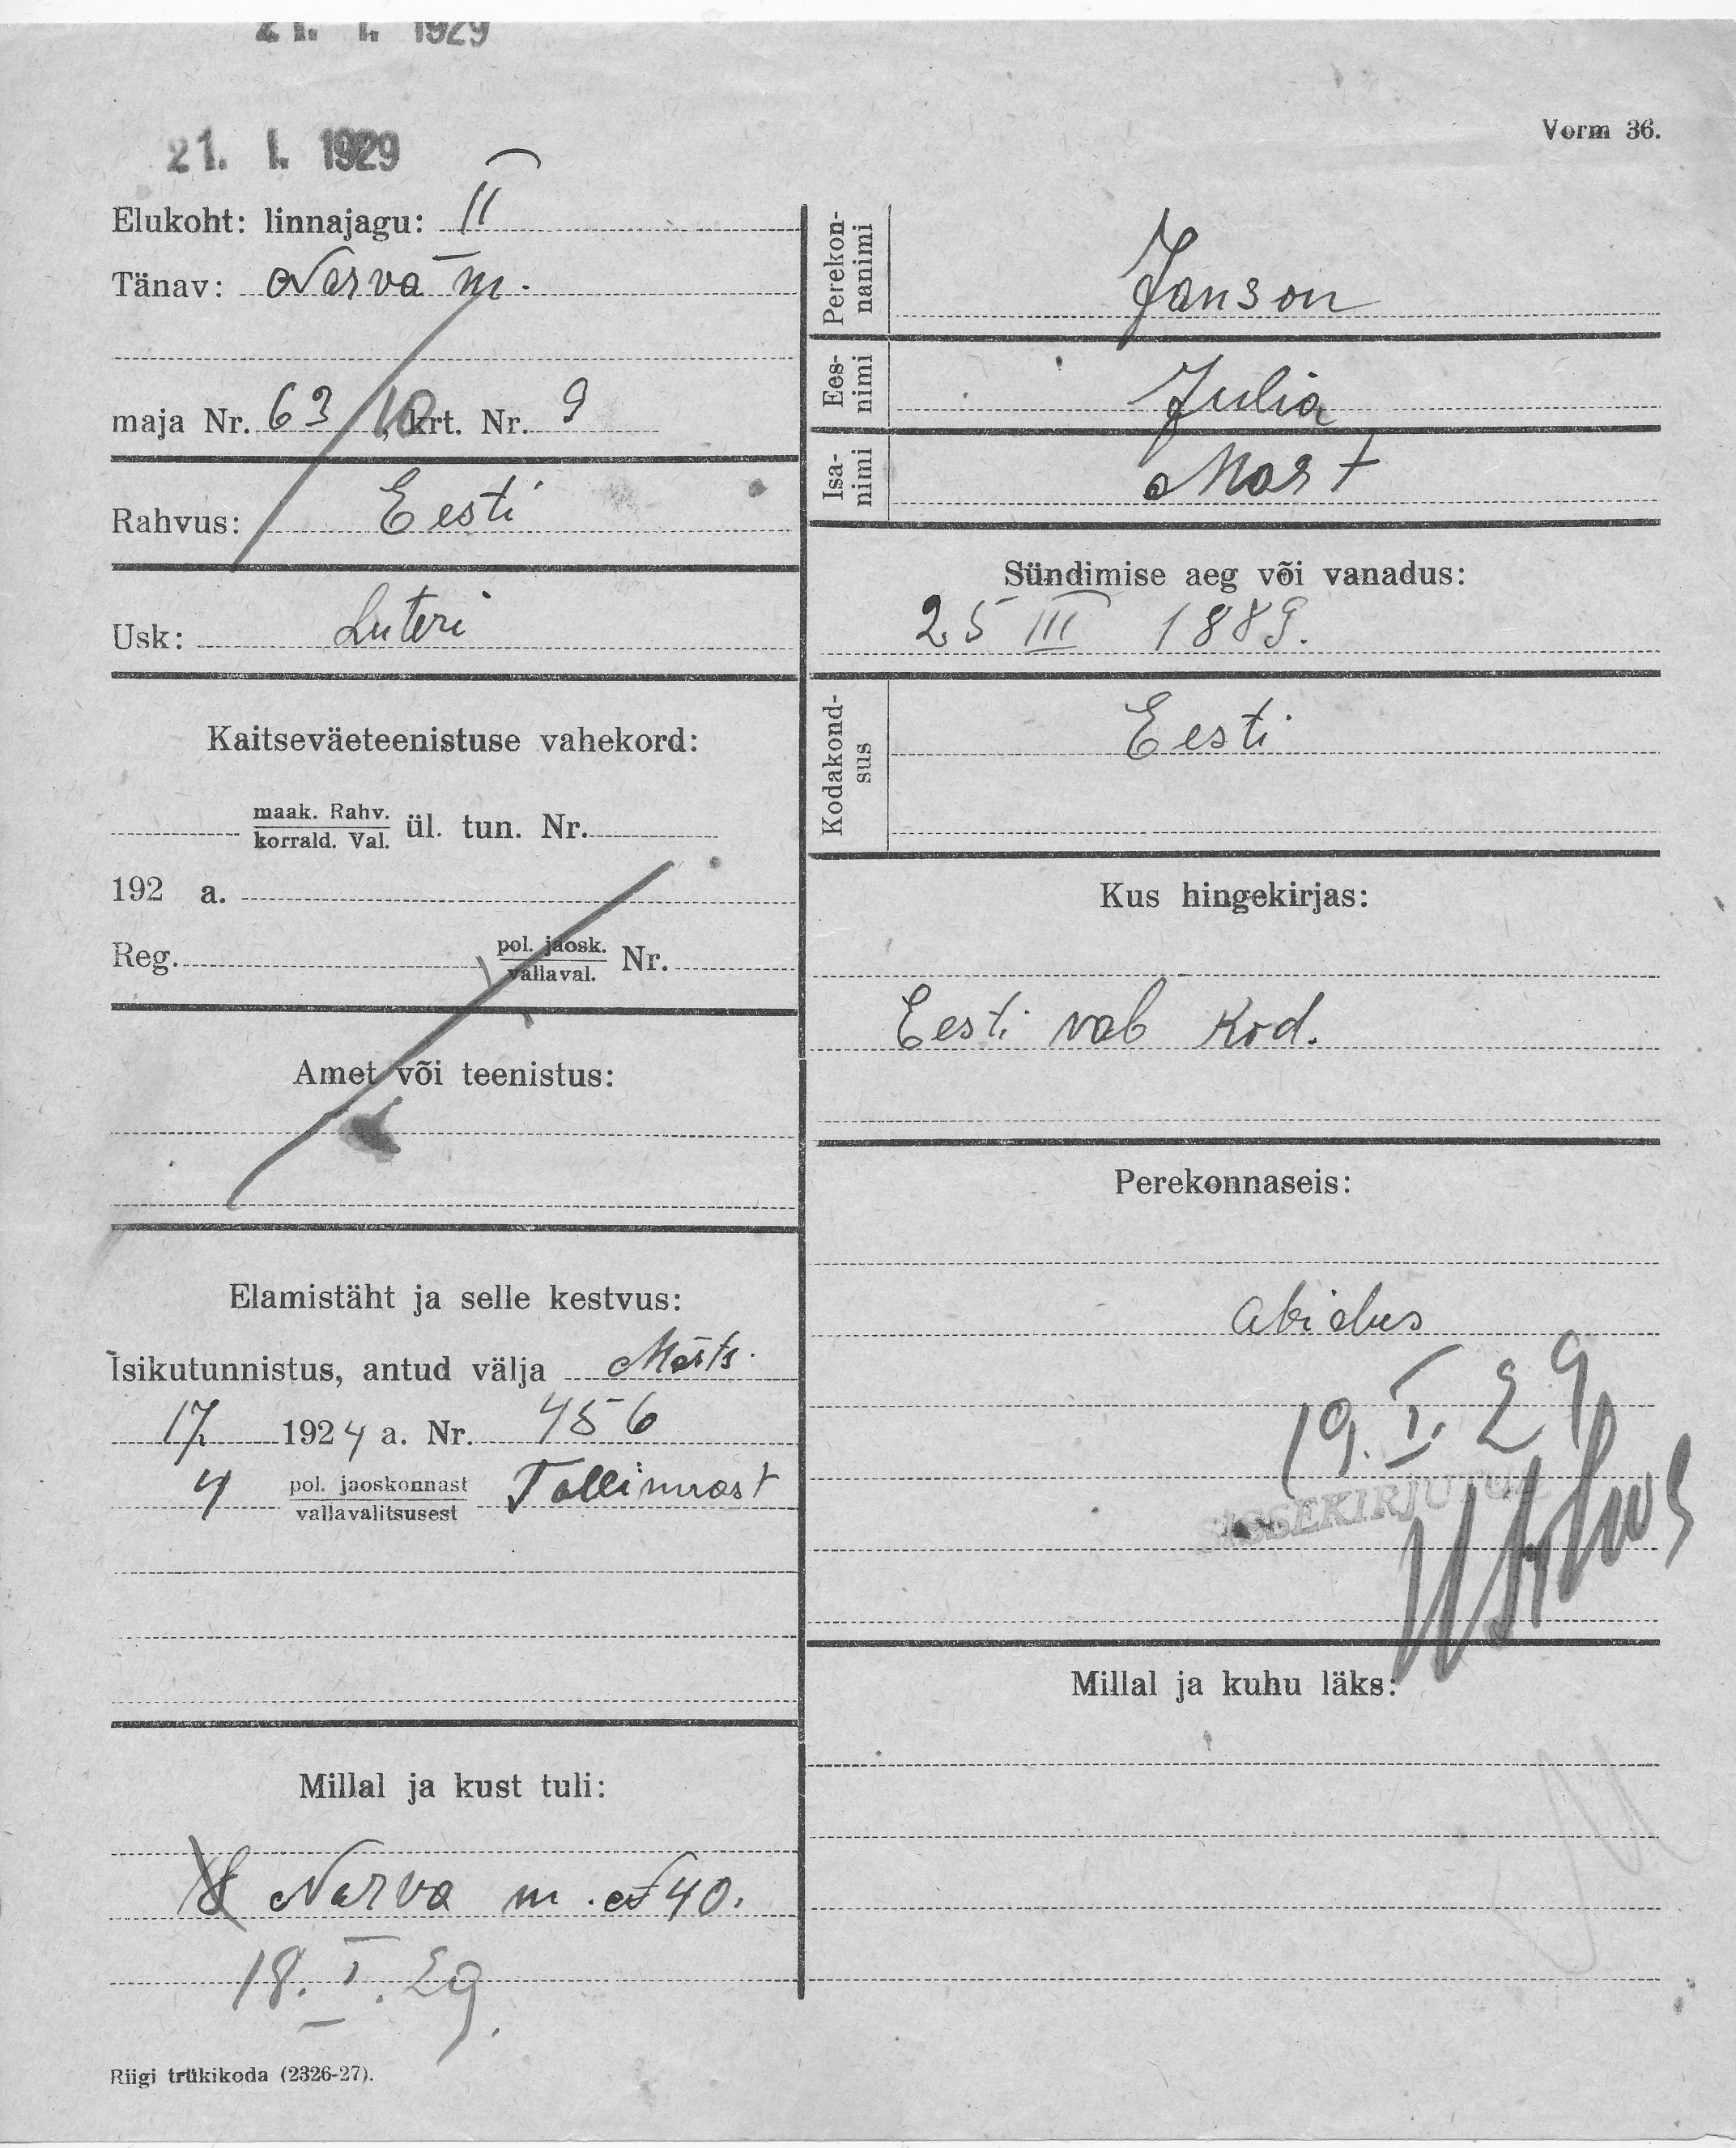 21. I. 1929
21. I. 1929
Vorm 36.
Elukoht: linnajagu: II
Tänav: Narva m.
maja Nr. 63/10, krt. Nr. 9
Rahvus: Eesti
Usk: Luteri
Kaitseväeteenistuse vahekord:
maak. Rahv.
korrald. Val.
ül. tun. Nr.
192 a.
Reg. pol. jaosk.
vallaval.
Nr.
Amet või teenistus:
Elamistäht ja selle kestvus:
Isikutunnistus, antud välja Märts.
17. 1924 a. Nr. 456
4 pol. jaoskonnast
vallavalitsusest
Tallinnast
Millal ja kust tuli:
Narva m. N 40.
18. I. 29.
Riigi trükikoda (2326-27).
Perekon-
nanimi
Janson
Ees-
nimi
Julia
Isa-
nimi
Mart
Sündimise aeg või vanadus:
25 III 1889.
Kodakond-
sus
Eesti
Kus hingekirjas:
Eesti vab kod.
Perekonnaseis:
abielus
19. I. 29
SISSEKIRJUTUD
Millal ja kuhu läks: